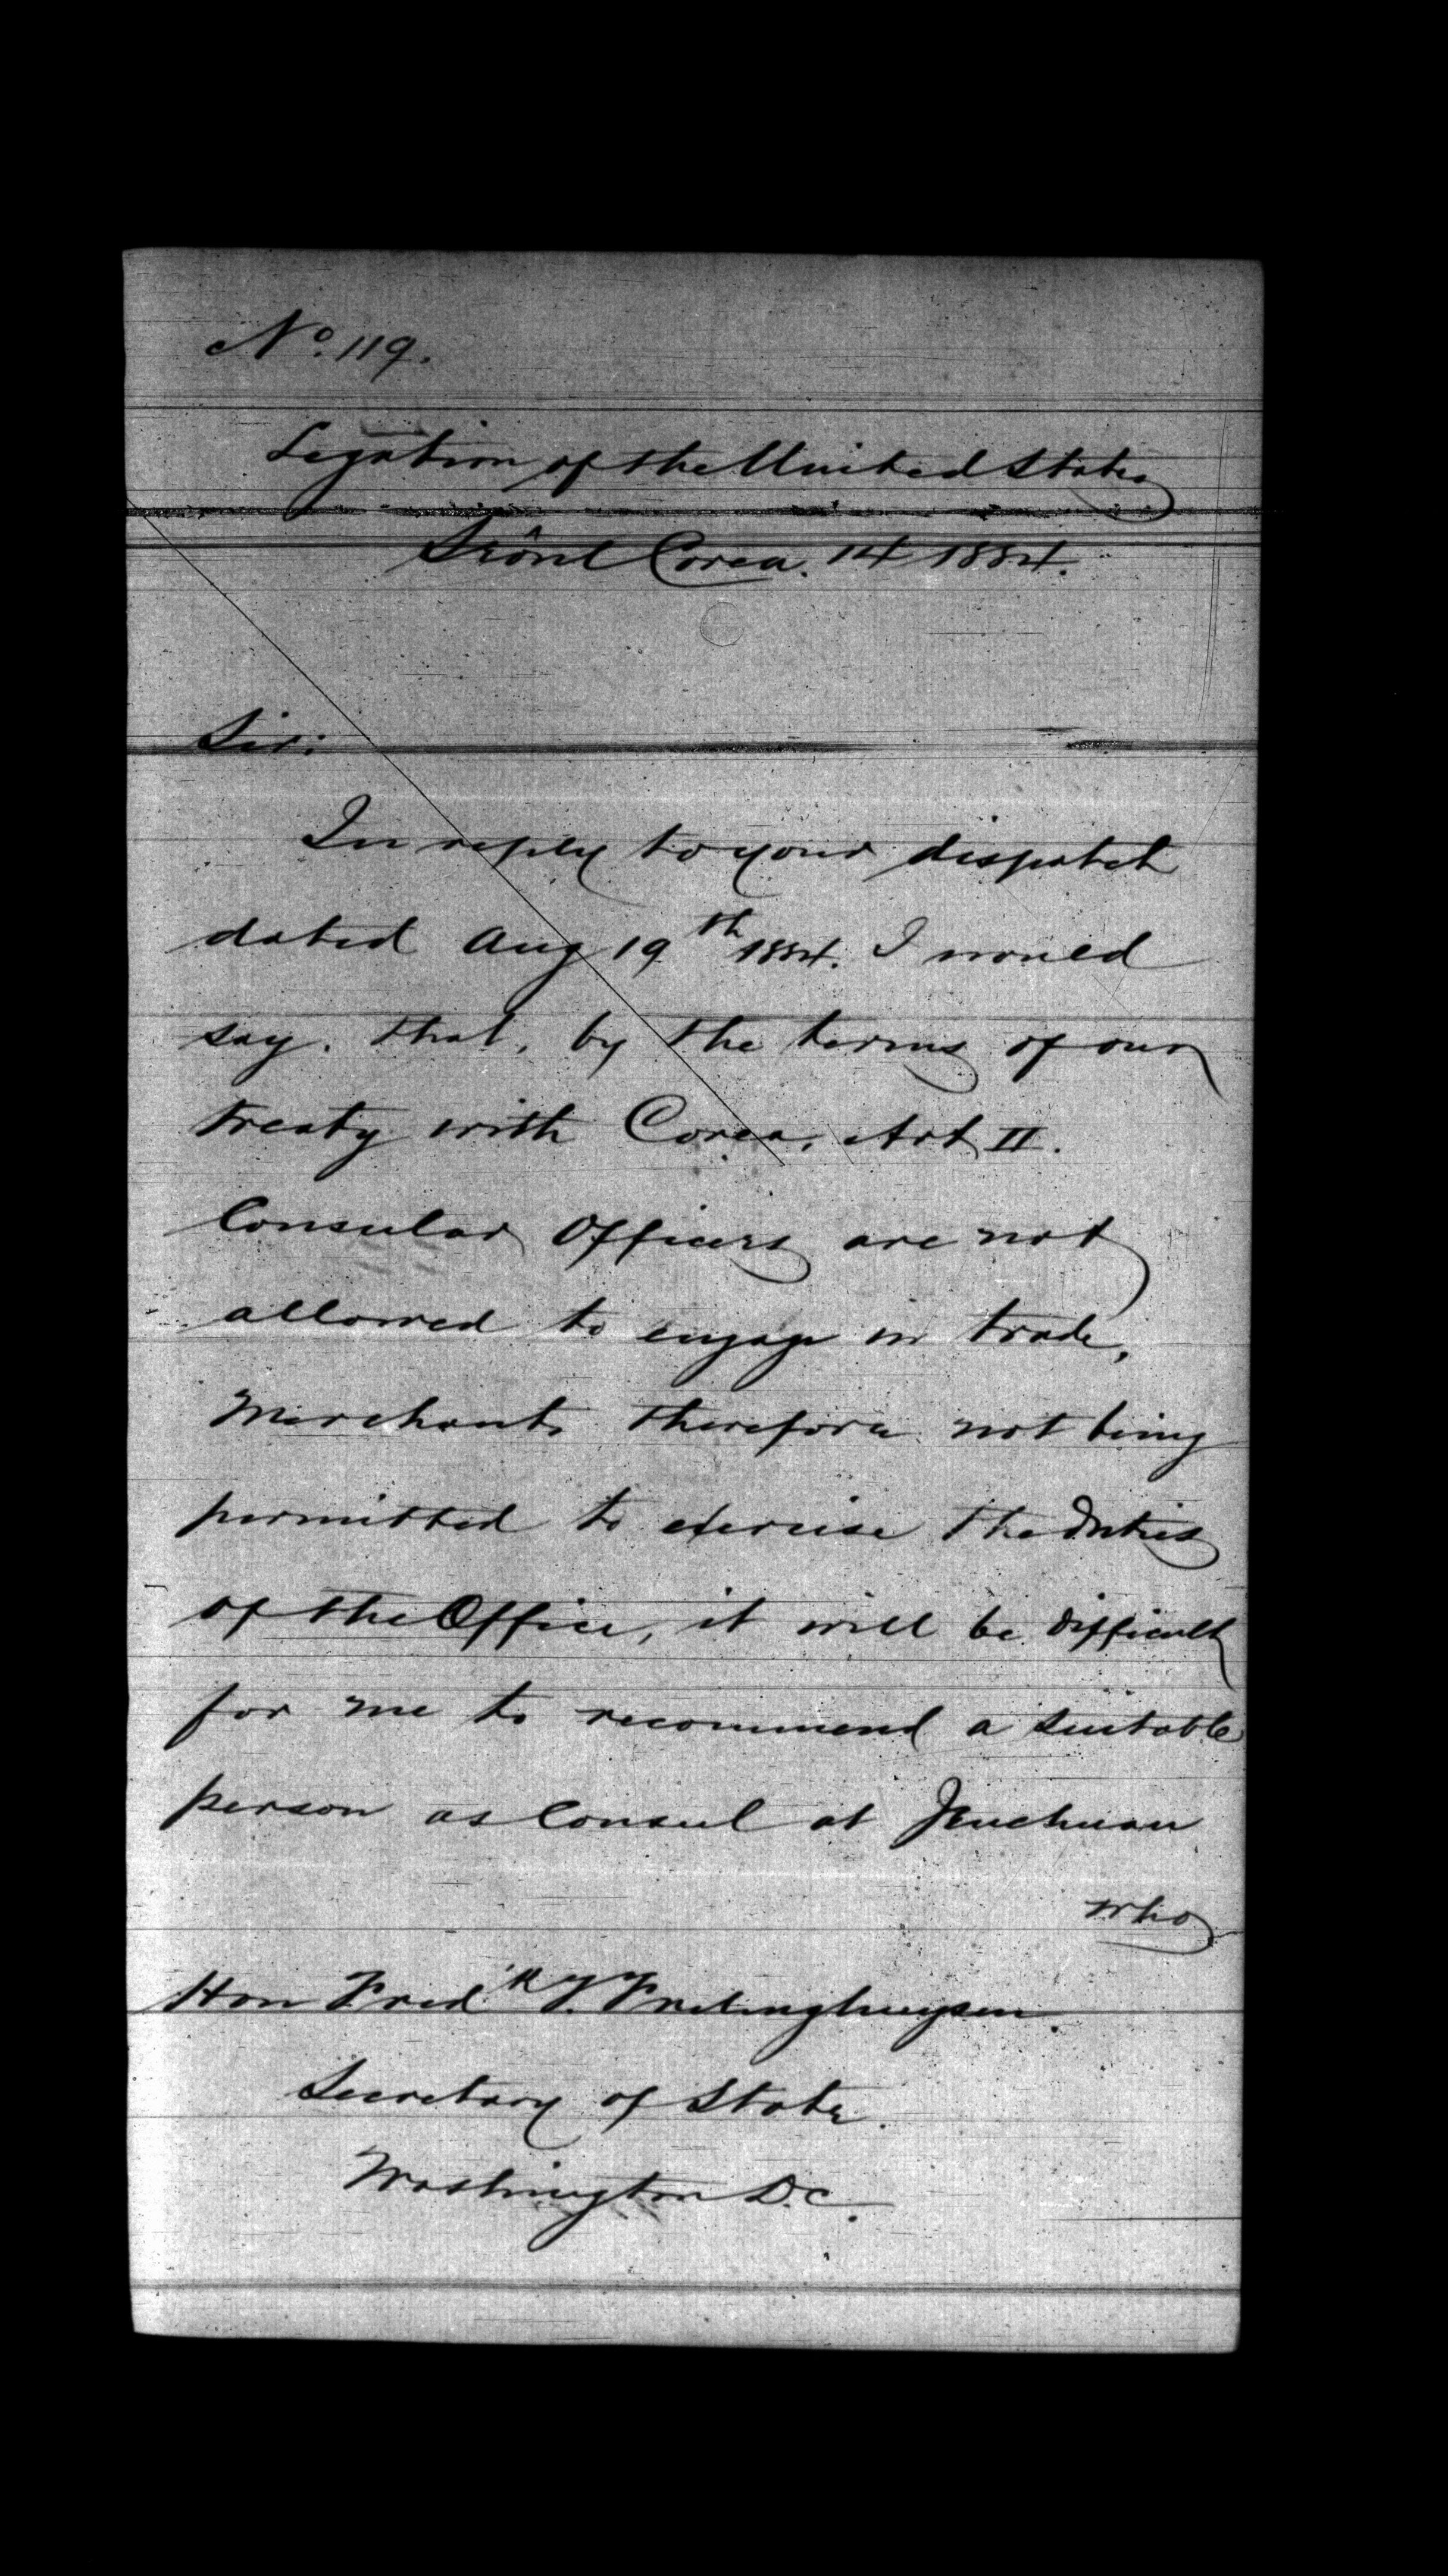 No. 119.
Legation of the United States
Sëoul Corea. 14 1884.
Sir:
In reply to your dispatch
dated Aug 19th 1884. I would
say. that, by the terms of our
treaty with Corea, Art II.
Consular Officers are not
allowed to engage in trade,
Merchants therefore not being
permitted to exercise the duties
of the Office, it will be difficult
for me to recommend a suitable
person as Consul at
who
Hon Fredk T. Frelinghuysen.
Secretary of State.
Washington D.C.